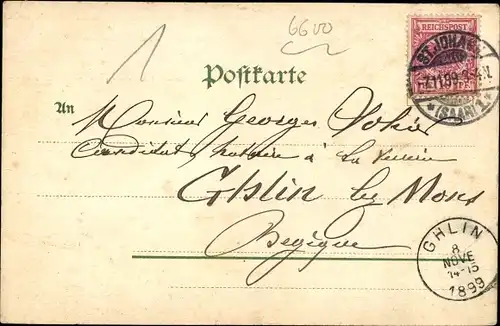 6600
1
REICHSPOST
ST. JOHANN
7.11.99. 3-4 N.
(SAAR) 1
Postkarte
An
Monsieur Georges
Candidat notaire à La
Ghlin lez Mons
Begique
GHLIN
8
NOVE
14-15
1899